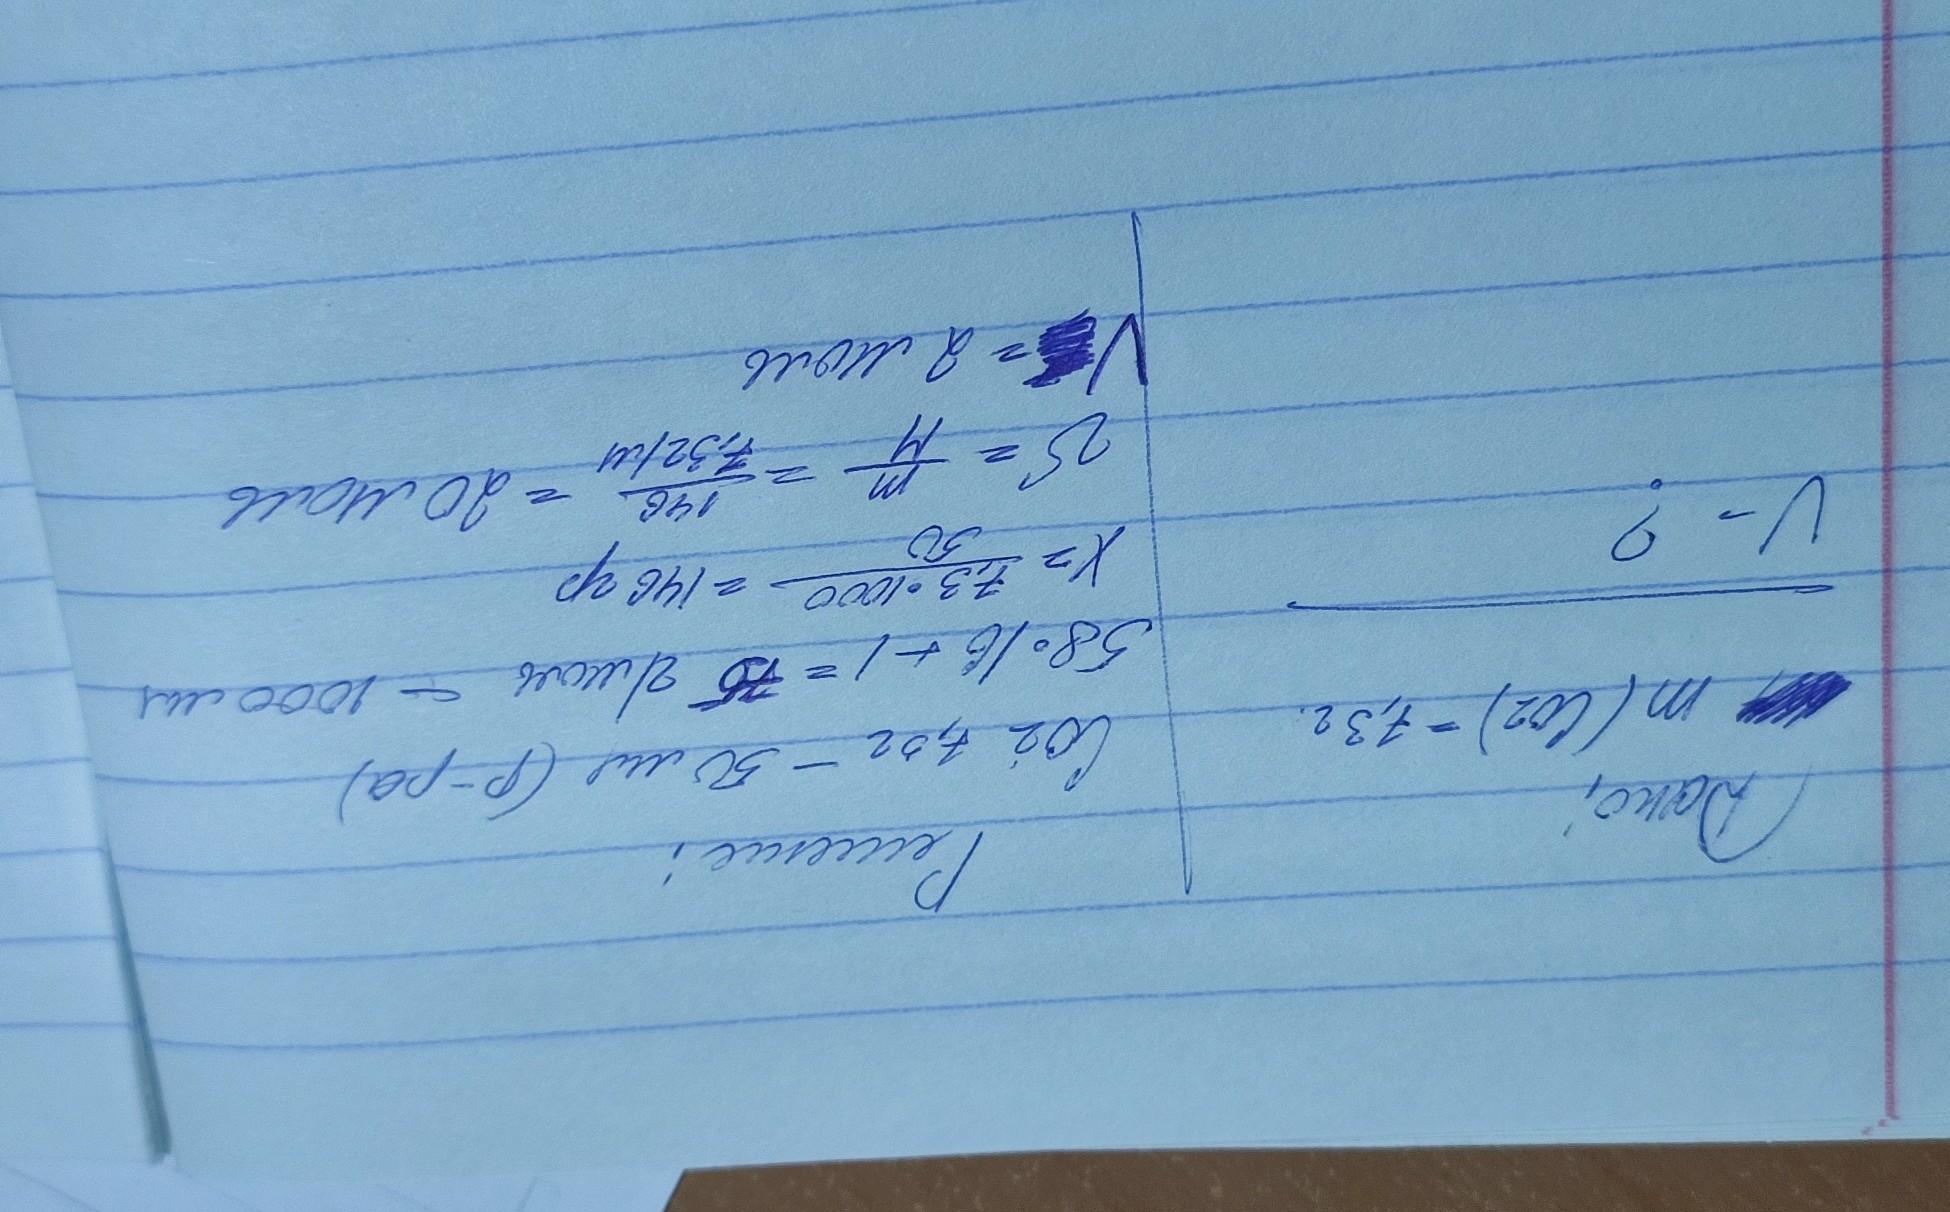 Дано;
m (CO2) = 7,3г.
V - ?
Решение:
CO2 7,3г - 50 мл (р-ра)
58·16+1= 2 моль - 1000 мл
X = 7,3·1000 / 50 = 146 гр
υ = m / M = 146 / 7,32/м = 20 моль
V = 2 моль